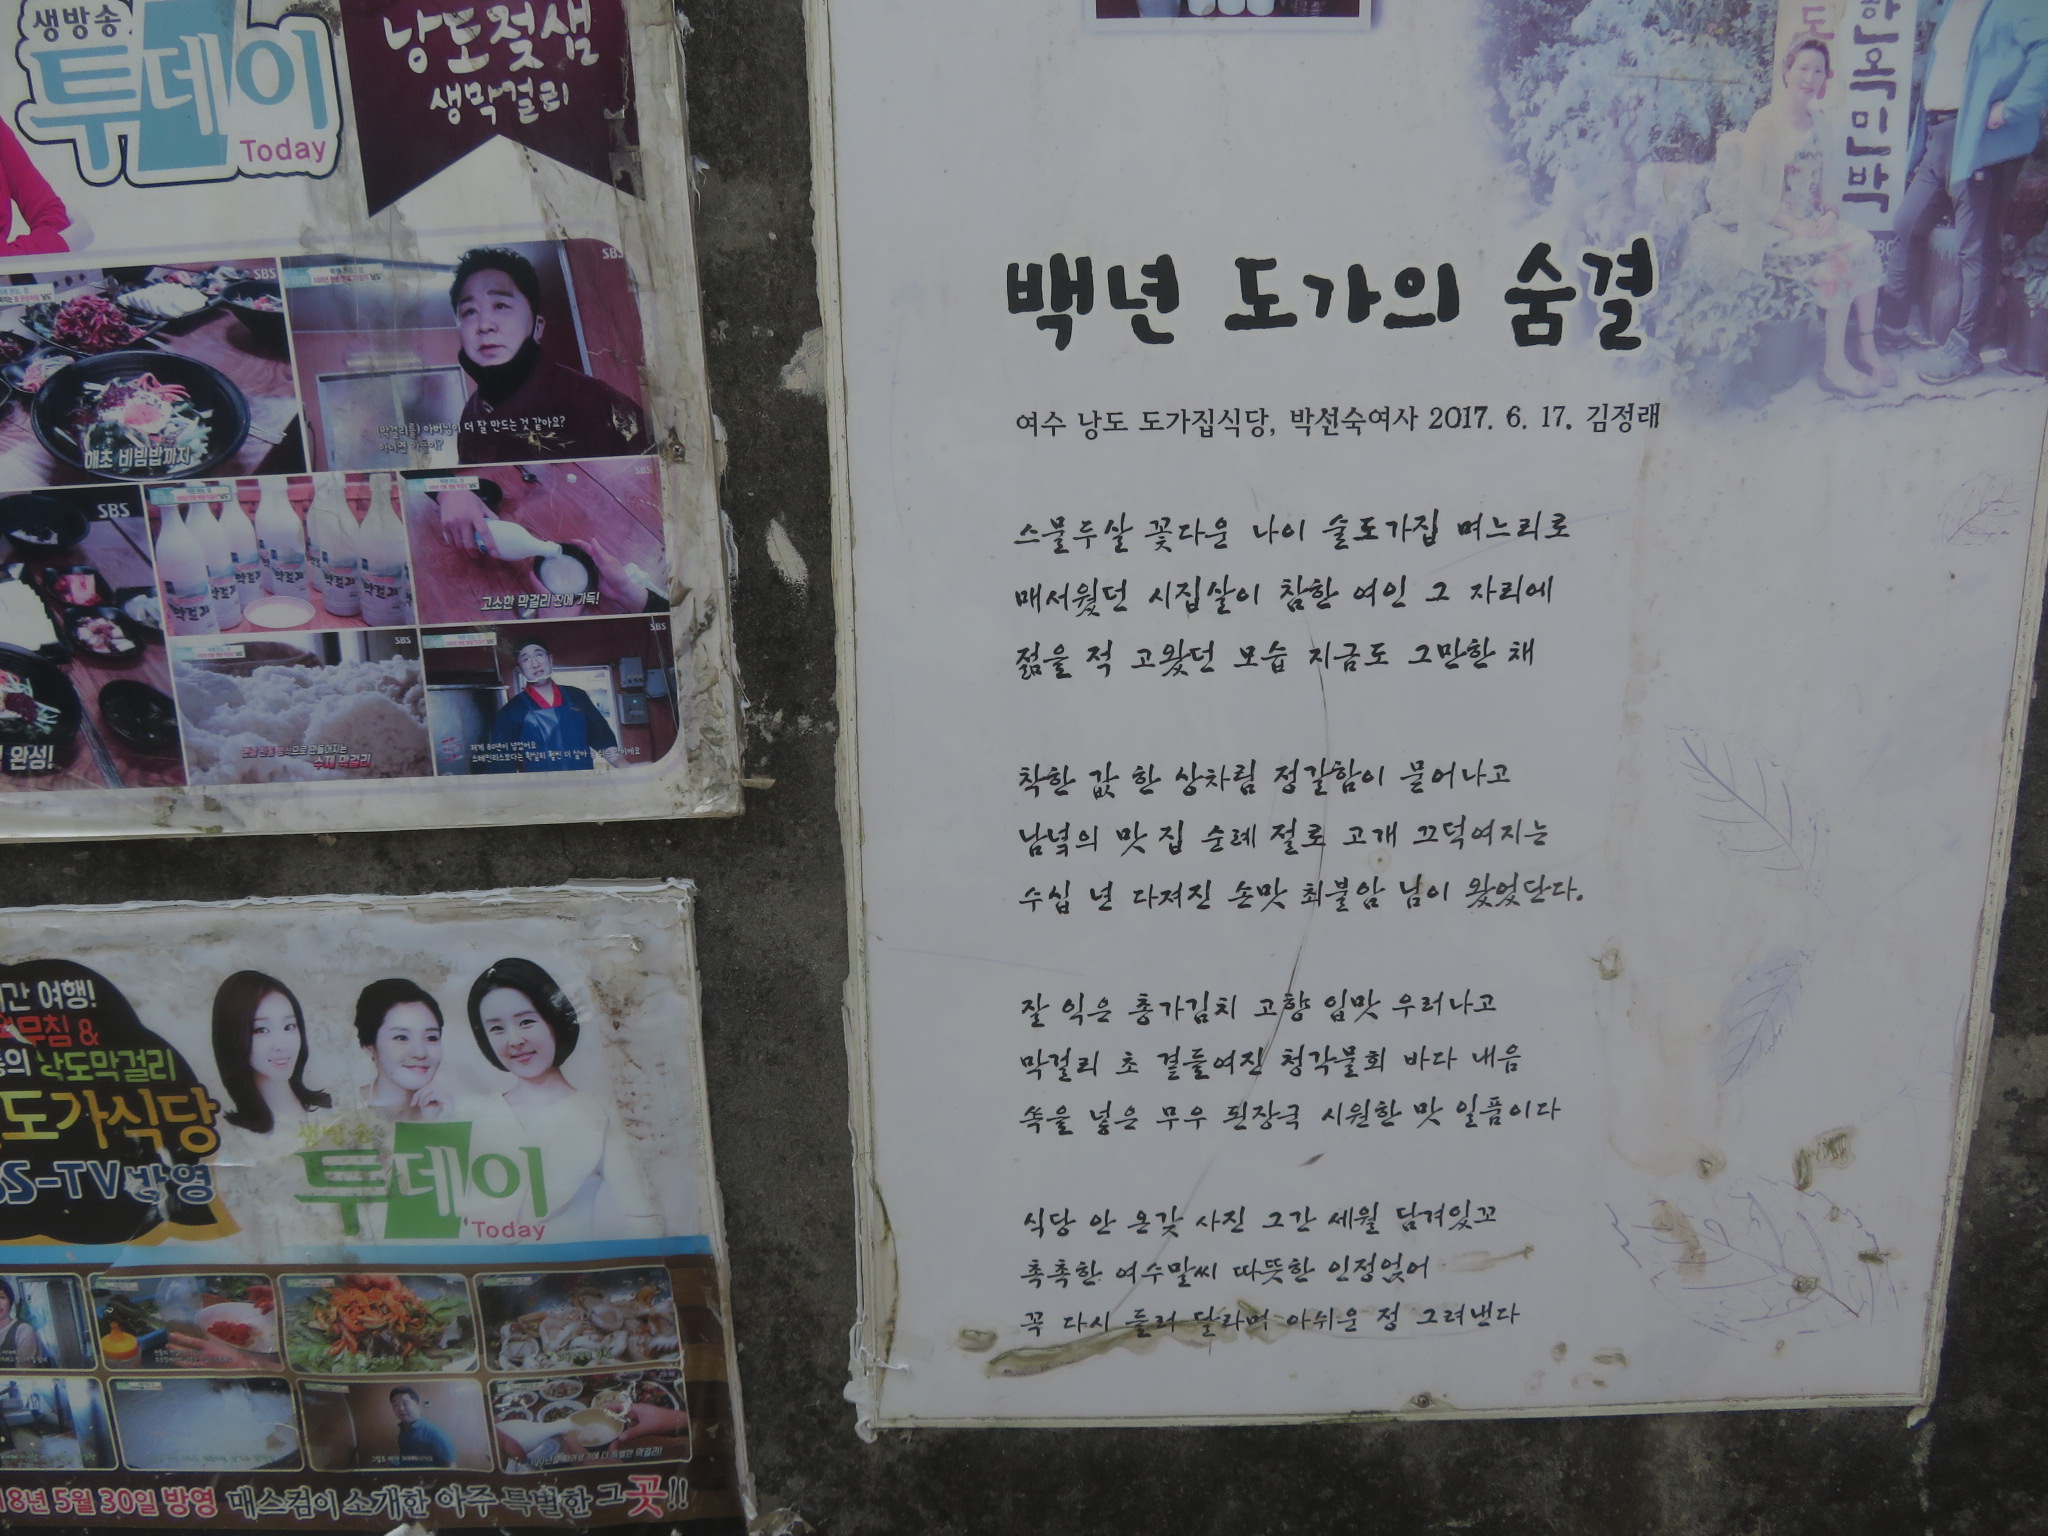 생방송
투데이
Today
낭도젖샘
생막걸리
SBS
해초 비빔밥까지
SBS
(막걸리를) 아버님이 더 잘 만드는 것 같아요?
아니면 아들이?
SBS
완성!
막걸리
SBS
고소한 막걸리 잔에 가득!
SBS
수제 막걸리
SBS
여행!
무침 &
낭도막걸리
도가식당
S-TV 방영
생방송
투데이
Today
18년 5월 30일 방영 매스컴이 소개한 아주 특별한 그곳!!
한옥민박
백년 도가의 숨결
여수 낭도 도가집식당, 박선숙여사 2017. 6. 17. 김정래
스물두살 꽃다운 나이 술도가집 며느리로
매서웠던 시집살이 참한 여인 그 자리에
젊을 적 고왔던 모습 지금도 그만한 채
착한 값 한 상차림 정갈함이 묻어나고
남녘의 맛 집 순례 절로 고개 끄덕여지는
수십 년 다져진 손맛 최불암 님이 왔었단다.
잘 익은 총각김치 고향 입맛 우러나고
막걸리 초 곁들여진 청각물회 바다 내음
쏙을 넣은 무우 된장국 시원한 맛 일품이다
식당 안 온갖 사진 그간 세월 담겨있고
촉촉한 여수말씨 따뜻한 인정얹어
꼭 다시 들러 달라며 아쉬운 정 그려낸다